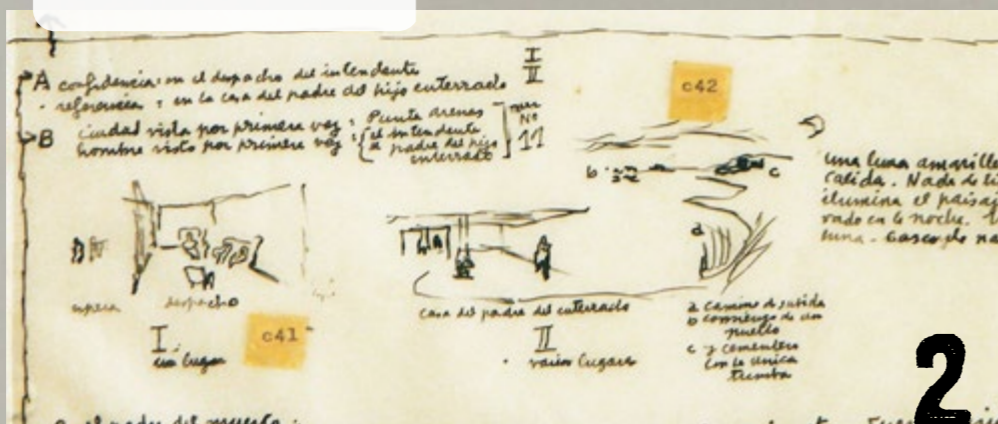 I
II
A confidencia: en el despacho del intendente
. referencia: en la casa del padre del hijo enterrado
B ciudad vista por primera vez: Punta Arenas
hombre visto por primera vez: { el intendente
el padre del hijo
enterrado
Nº
11
c42
b
c
a
una luna amarilla
calida. Nada de
ilumina el paisaj
en la noche.
luna.
espera
despacho
casa del padre del enterrado
a camino de subida
b comienzo de un
pueblo
c y cementerio
con la única
tumba
I
un lugar
c41
II
. varios lugares
2
el padre del muerto